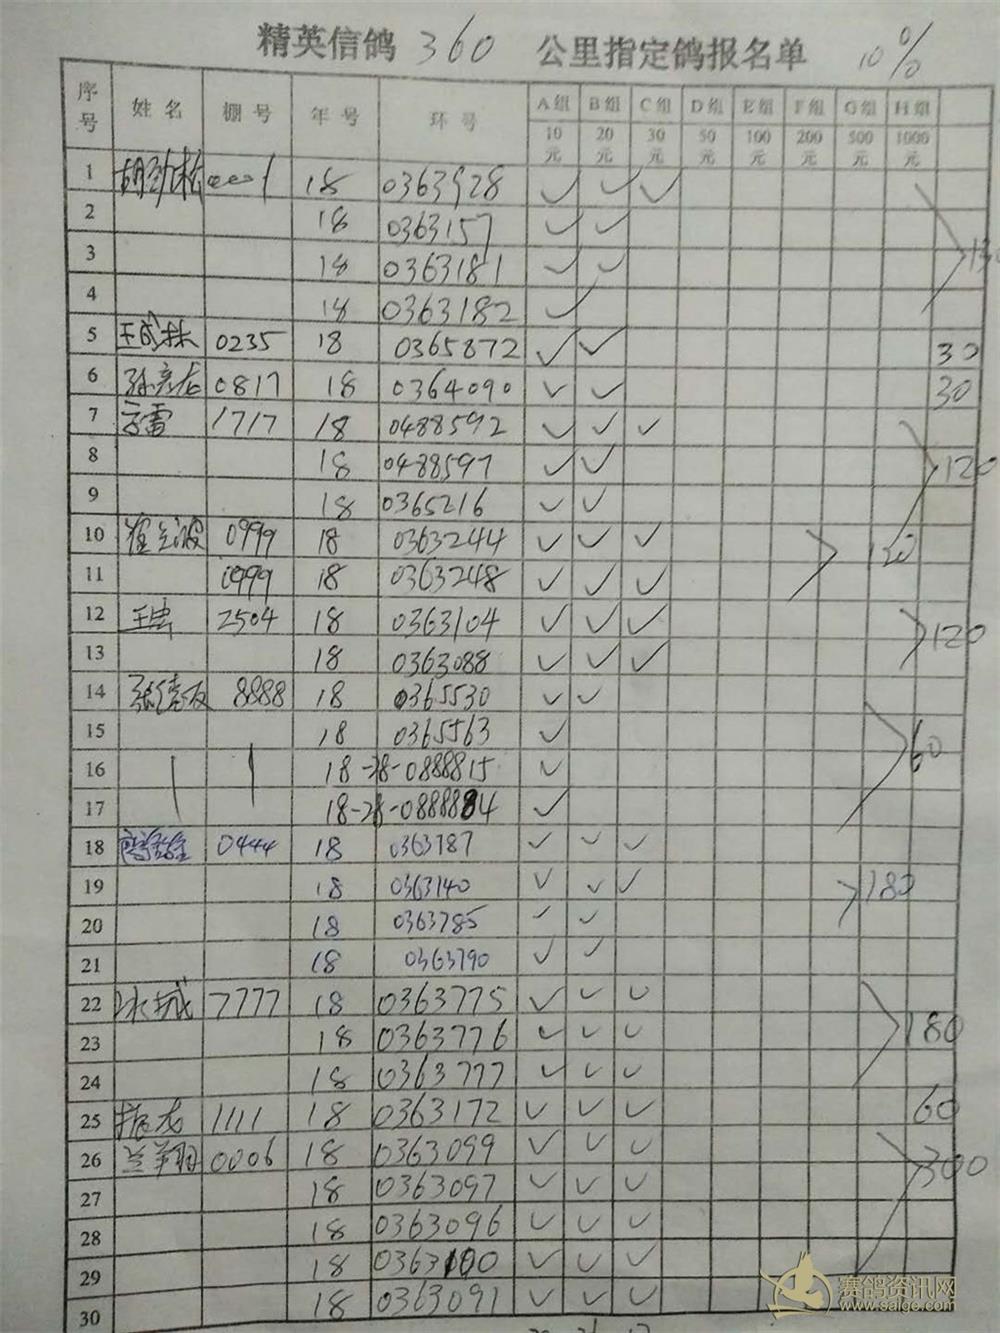 精英信鸽 360 公里指定鸽报名单 10%
序号 姓名 棚号 年号 环号 A组 B组 C组 D组 E组 F组 G组 H组
10元 20元 30元 50元 100元 200元 500元 1000元
1 胡劲松 0001 18 0363928 ✓ ✓ ✓
2 18 0363157 ✓ ✓
3 18 0363181 ✓ ✓ 130
4 18 0363182 ✓
5 王成林 0235 18 0365872 ✓ ✓ 30
6 孙彦龙 0817 18 0364090 ✓ ✓ 30
7 1717 18 0488592 ✓ ✓ ✓
8 18 0488597 ✓ ✓ 120
9 18 0365216 ✓ ✓
10 0999 18 0363244 ✓ ✓ ✓ 120
11 0999 18 0363248 ✓ ✓ ✓
12 2504 18 0363104 ✓ ✓ ✓ 120
13 18 0363088 ✓ ✓ ✓
14 8888 18 0365530 ✓ ✓
15 18 0365563 ✓ 60
16 18-28-0888815 ✓
17 18-28-0888884 ✓
18 0444 18 0363787 ✓ ✓ ✓
19 18 0363140 ✓ ✓ ✓ 180
20 18 0363785 ✓ ✓
21 18 0363790 ✓ ✓
22 7777 18 0363775 ✓ ✓ ✓
23 18 0363776 ✓ ✓ ✓ 180
24 18 0363777 ✓ ✓ ✓
25 振龙 1111 18 0363172 ✓ ✓ ✓ 60
26 兰翔 0006 18 0363099 ✓ ✓ ✓ 300
27 18 0363097 ✓ ✓ ✓
28 18 0363096 ✓ ✓ ✓
29 18 0363100 ✓ ✓ ✓
30 18 0363091 ✓ ✓ ✓
赛鸽资讯网
www.saige.com